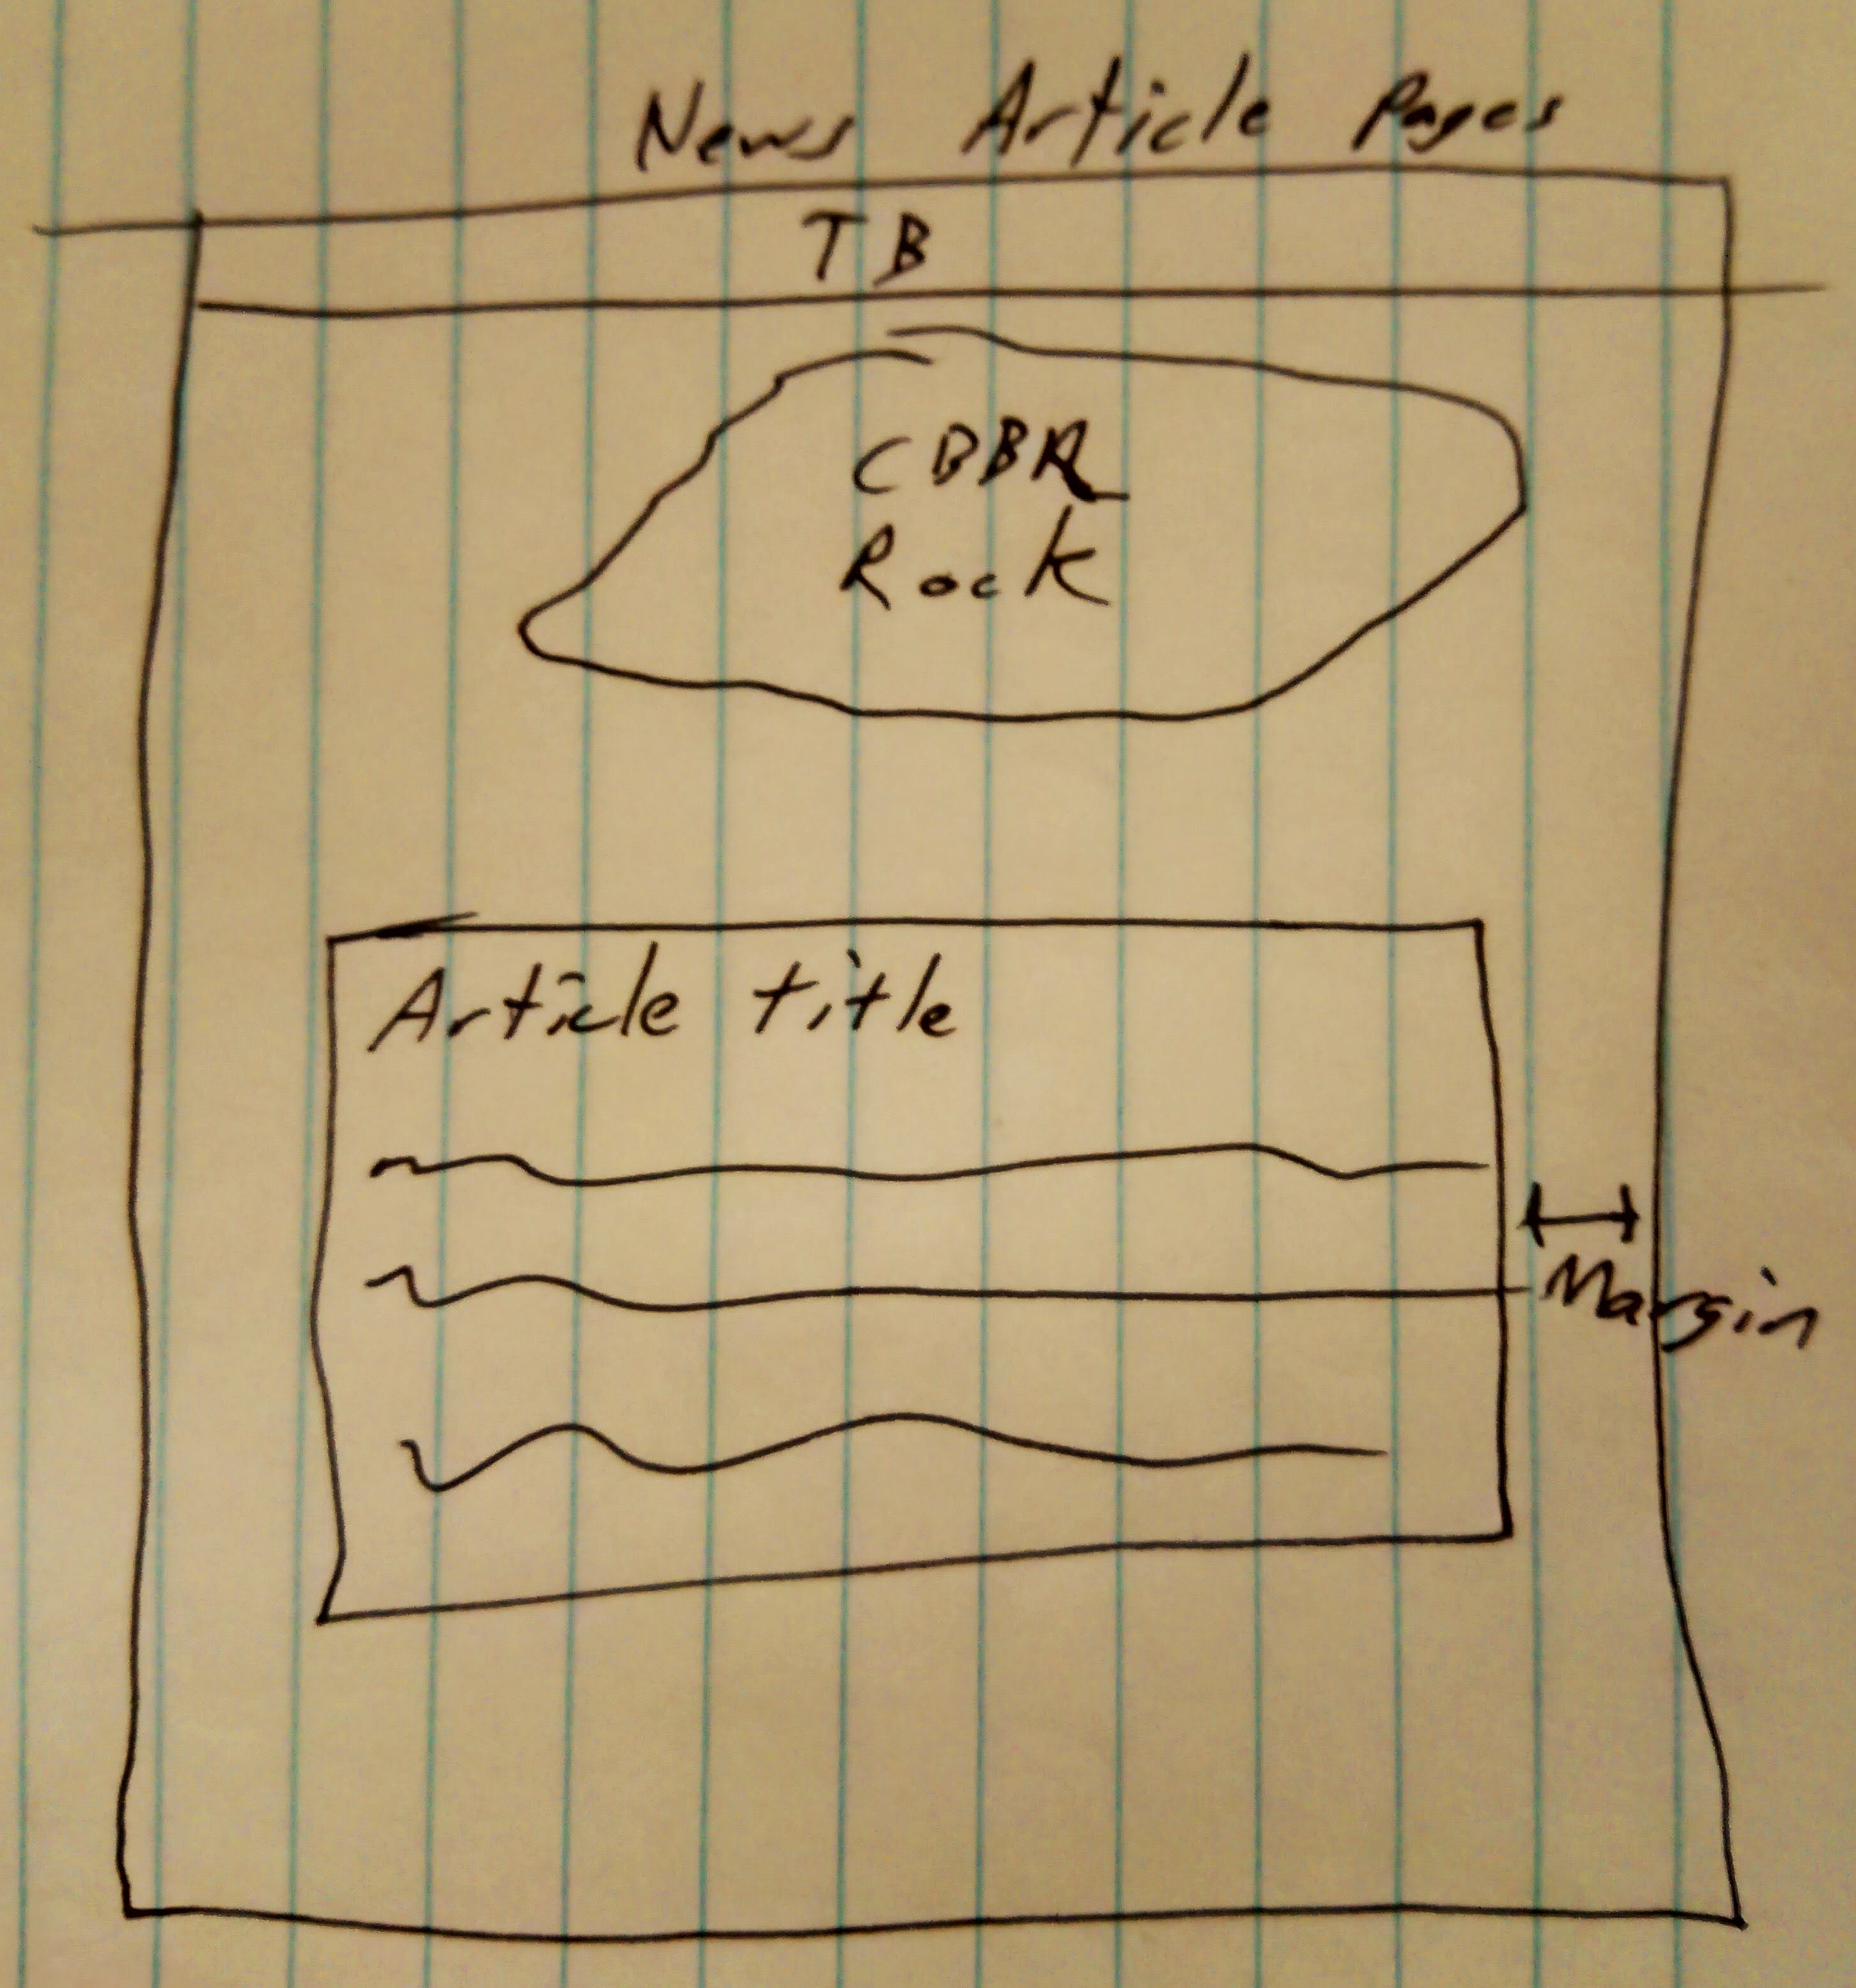 News Article Pages
TB
CBBR
Rock
Article title
Margin